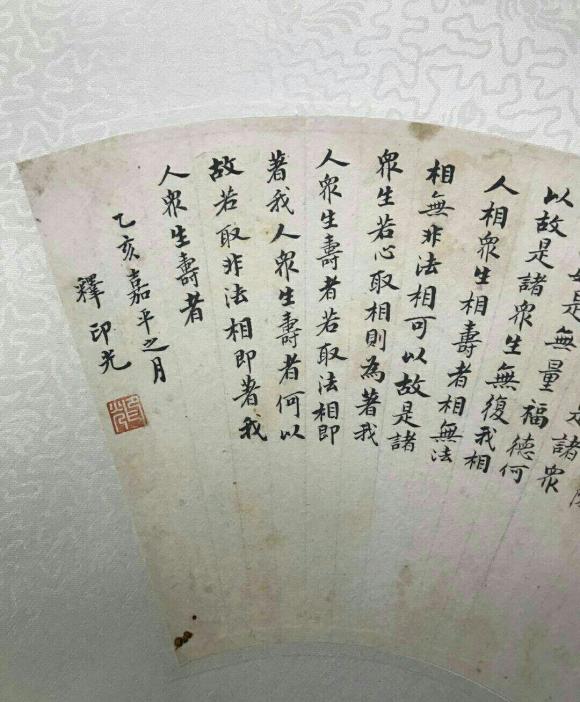 是諸眾
如是無量福德何
以故是諸眾生無復我相
人相眾生相壽者相無法
相無非法相可以故是諸
眾生若心取相則為著我
人眾生壽者若取法相即
著我人眾生壽者何以
故若取非法相即著我
人眾生壽者
乙亥嘉平之月
釋印光